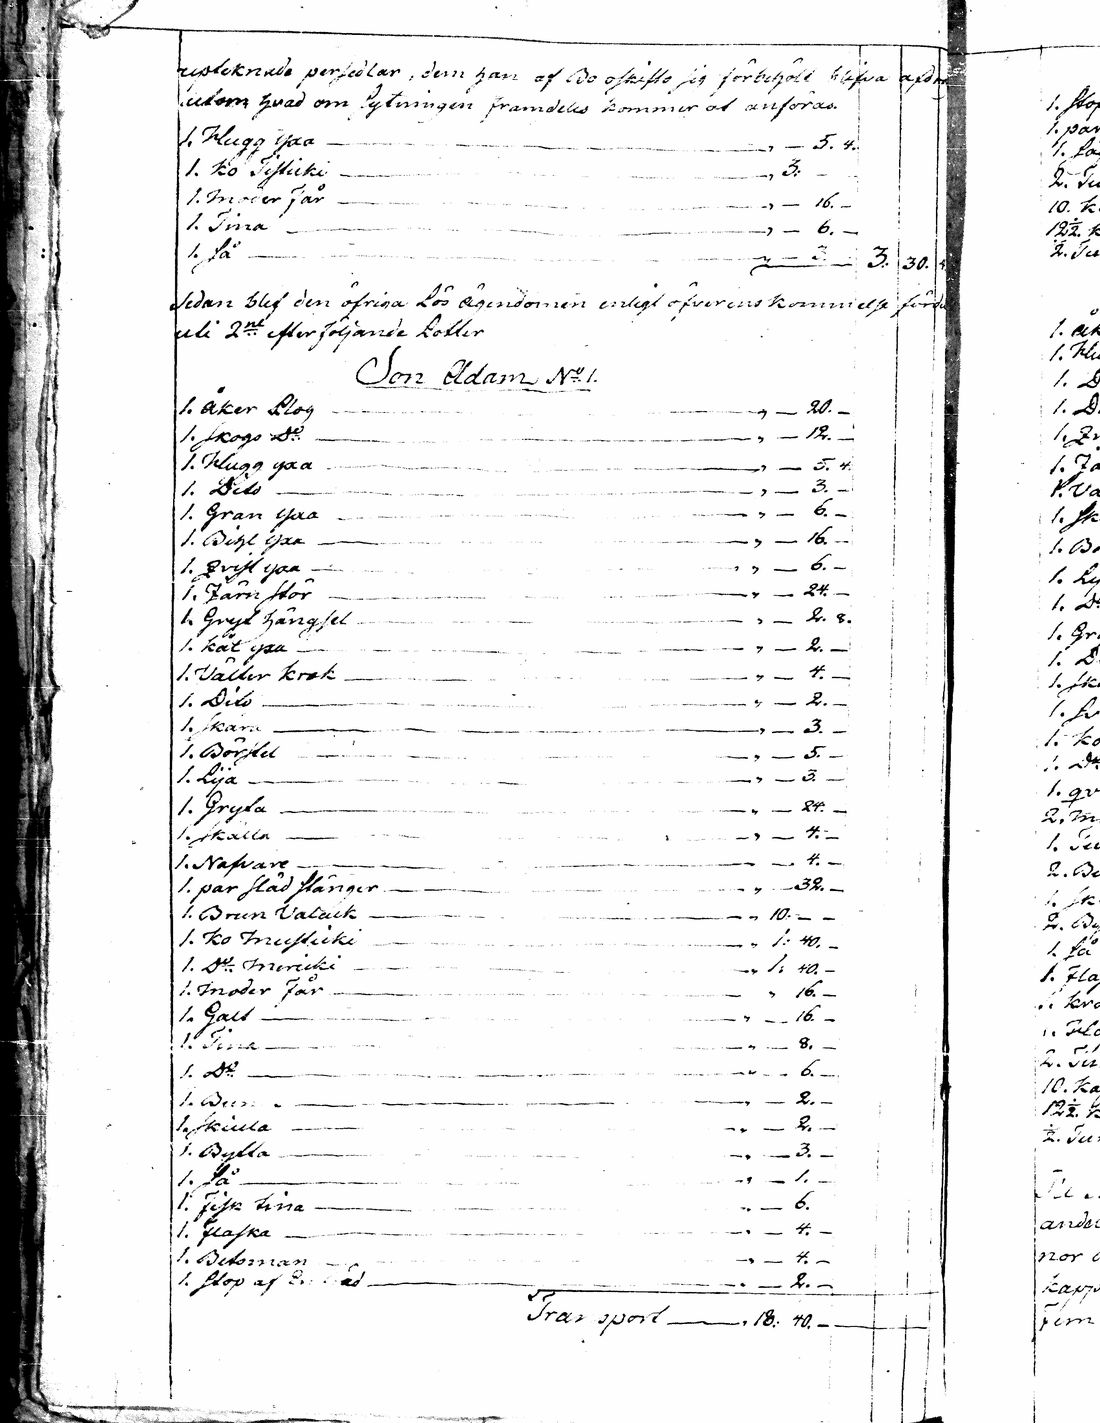 upteknade persedlar, dem han af Bo oskifto sig förbehölt blifva afdra
utom hvad om Sytningen framdeles kommer at anföras.
1. Hugg yxa — „ — 5. 4.
1. Ko Tisticki — „ 3. —
1. Moder Får — „ — 16. —
1. Tina — „ — 6. —
1. Så — „ — 3 — 3. 30. 4
Sedan blef den öfriga Lös Ägendomen enligt öfverenskommelse förde
uti 2ne efterföljande Lotter
Son Adam No 1.
1. Åker Plog — „ — 20. —
1. Skogs Do — „ — 12. —
1. Hugg yxa — „ — 5. 4
1. Dito — „ — 3. —
1. Gran yxa — „ — 6. —
1. Bihl yxa — „ — 16. —
1. Qvist yxa — „ — 6. —
1. Järn Stör — „ — 24. —
1. Gryt hängsel — „ — 2. 8.
1. Kåt yxa — „ — 2. —
1. Välter krok — „ — 4. —
1. Dito — „ — 2. —
1. Skära — „ — 3. —
1. Börstel — „ — 5. —
1. Lija — „ — 3. —
1. Gryta — „ — 24. —
1. Skälla — „ — 4. —
1. Nafvare — „ — 4. —
1. par Släd Stänger — „ — 32. —
1. Brun Valack — „ 10. — —
1. Ko Musticki — „ 1: 40. —
1. Do Mericki — „ 1: 40. —
1. Moder Får — „ 16. —
1. Galt — „ — 16. —
1. Tina — „ — 8. —
1. Do — „ — 6. —
1. — „ — 2. —
1. Skiula — „ — 2. —
1. Bytta — „ — 3. —
1. Så — „ — 1. —
1. Fisk tina — „ — 6.
1. Flaska — „ — 4. —
1. Betsman — „ — 4. —
1. Stop af — „ — 2. —
Transport — „ 18: 40. —
1. Stop
1. par
1. Så
2. Tu
10. K
12½. K
2. Tu
1. Åk
1. Hu
1. D
1. D
1. Gr
1. Jä
1. Vä
1. Sk
1. Bö
1. Ly
1. Do
1. Gr
1. D
1. Sk
1. Ko
1. Do
1. qv
2. M
1. Tu
2. Be
1. Sk
2. By
1. Så
1. Fla
1. Kro
2. Tin
10. Ka
12½. K
½. Tun
ande
nor
kapp
fem